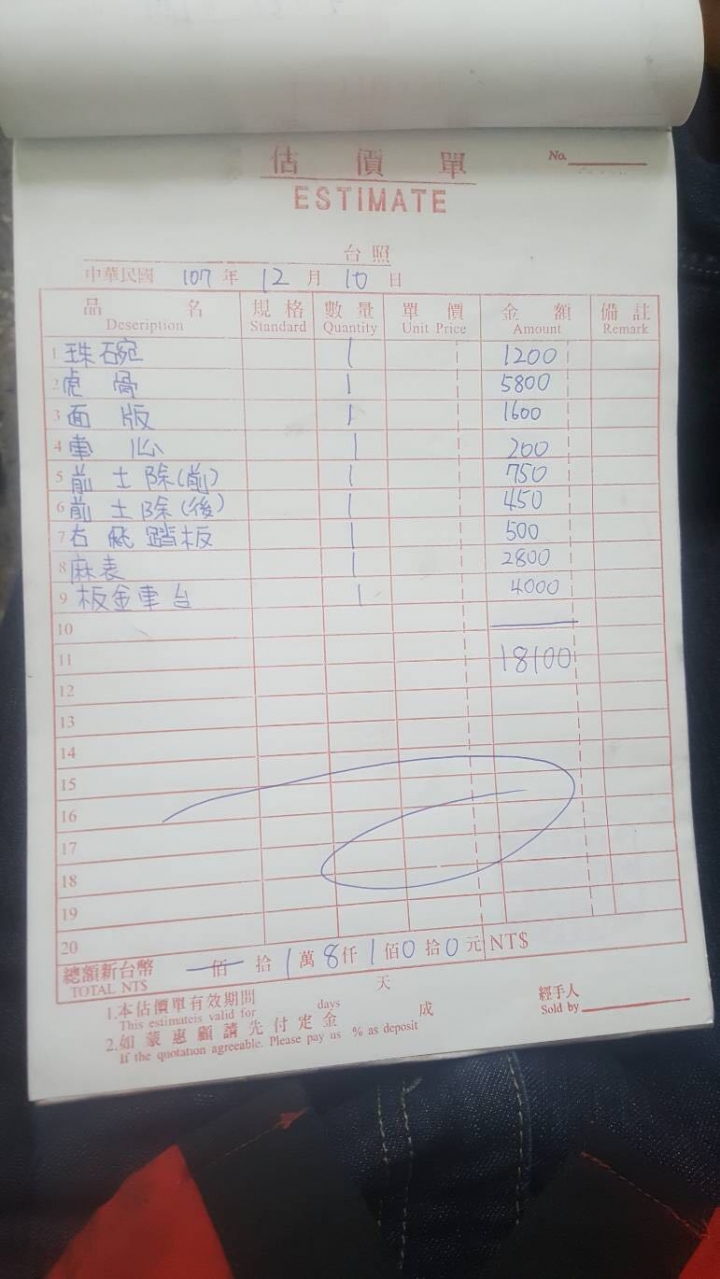 估價單
No.
ESTIMATE
台照
中華民國 107 年 12 月 10 日
品名 規格 數量 單價 金額 備註
Description Standard Quantity Unit Price Amount Remark
1 珠碗 1 1200
2 虎骨 1 5800
3 面版 1 1600
4 車心 1 200
5 前土除(前) 1 750
6 前土除(後) 1 450
7 右飛踏板 1 500
8 麻表 1 2800
9 板金車台 1 4000
10
11 18100
12
13
14
15
16
17
18
19
20
總額新台幣 佰 拾 1 萬 8 仟 1 佰 0 拾 0 元 NT$
TOTAL NT$
1.本估價單有效期間 天
This estimateis valid for days
2.如蒙惠顧請先付定金 成
If the quotation agreeable. Please pay us % as deposit
經手人
Sold by